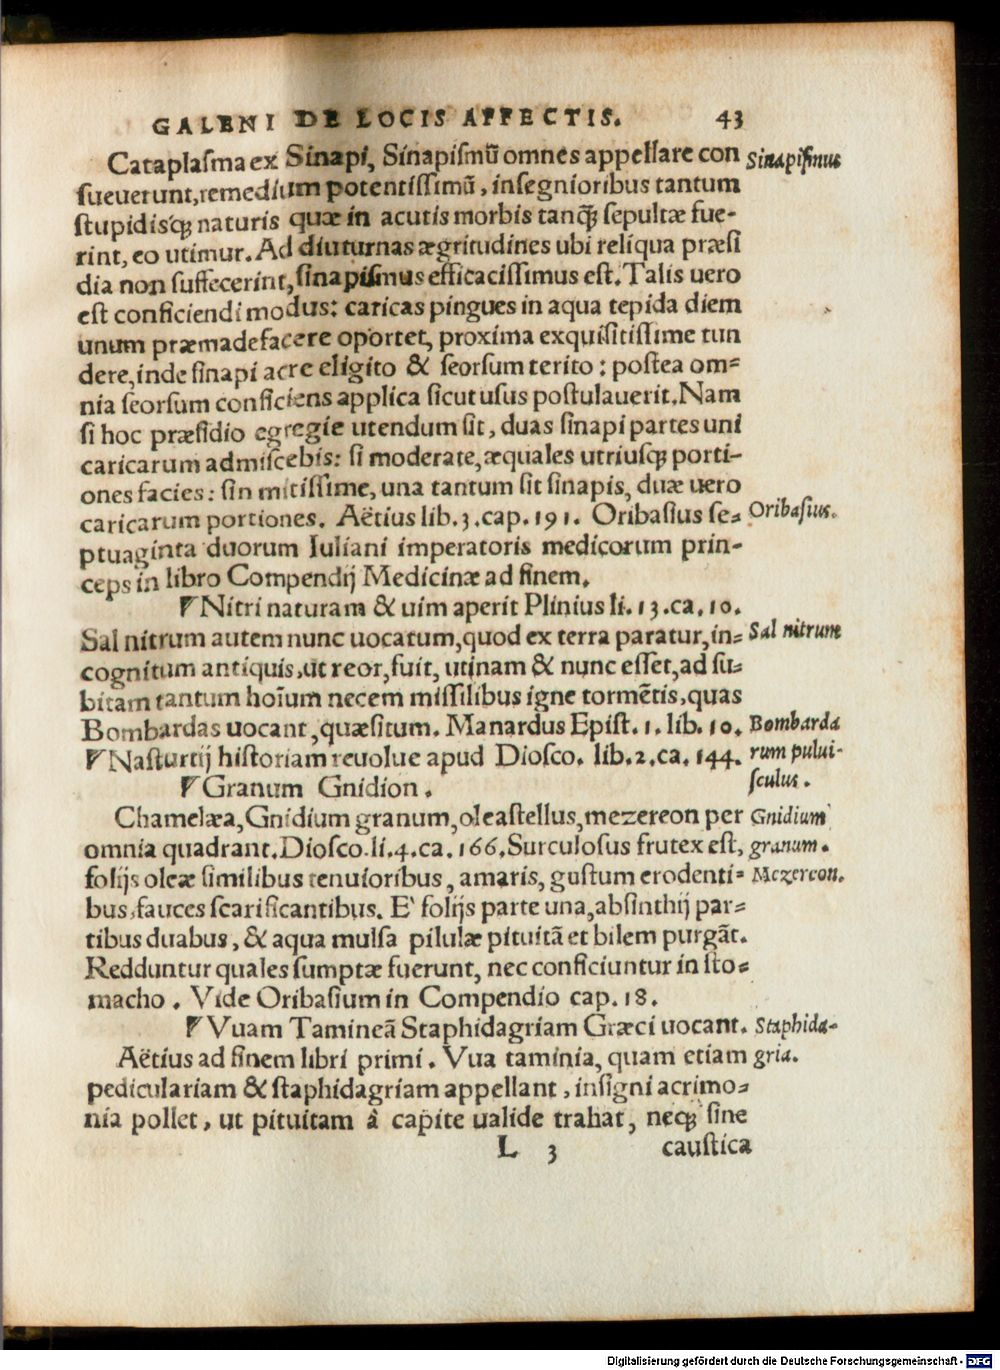 GALENI DE LOCIS AFFECTIS. 43
Cataplasma ex Sinapi, Sinapismū omnes appellare con
Sinapismus
sueuerunt, remedium potentissimū, insegnioribus tantum
stupidisq́ꝫ naturis quæ in acutis morbis tanq̃ꝫ sepultæ fue-
rint, eo utimur. Ad diuturnas ægritudines ubi reliqua præsi
dia non suffecerint, sinapismus efficacissimus est. Talis uero
est conficiendi modus: caricas pingues in aqua tepida diem
unum præmadefacere oportet, proxima exquisitissime tun
dere, inde sinapi acre eligito & seorsum terito: postea om-
nia seorsum conficiens applica sicut usus postulauerit. Nam
si hoc præsidio egregie utendum sit, duas sinapi partes uni
caricarum admiscebis: si moderate, æquales utriusqꝫ porti-
ones facies: sin mitissime, una tantum sit sinapis, duæ uero
caricarum portiones. Aëtius lib. 3. cap. 191. Oribasius se-
Oribasius.
ptuaginta duorum Iuliani imperatoris medicorum prin-
ceps in libro Compendij Medicinæ ad finem.
Nitri naturam & uim aperit Plinius li. 13. ca. 10.
Sal nitrum autem nunc uocatum, quod ex terra paratur, in-
Sal nitrum
cognitum antiquis, ut reor, fuit, utinam & nunc esset, ad su-
bitam tantum hoīum necem missilibus igne tormētis, quas
Bombardas uocant, quæsitum. Manardus Epist. 1. lib. 10.
Bombarda
Nasturtij historiam reuolue apud Diosco. lib. 2. ca. 144.
rum pului-
Granum Gnidion.
sculus.
Chamelæa, Gnidium granum, oleastellus, mezereon per
Gnidium
omnia quadrant. Diosco. li. 4. ca. 166. Surculosus frutex est,
granum.
folijs oleæ similibus tenuioribus, amaris, gustum erodenti-
Mezereon.
bus, fauces scarificantibus. E' folijs parte una, absinthij par-
tibus duabus, & aqua mulsa pilulæ pituitā et bilem purgāt.
Redduntur quales sumptæ fuerunt, nec conficiuntur in sto-
macho. Vide Oribasium in Compendio cap. 18.
Vuam Tamineā Staphidagriam Græci uocant.
Staphida-
Aëtius ad finem libri primi. Vua taminia, quam etiam
gria.
pediculariam & staphidagriam appellant, insigni acrimo-
nia pollet, ut pituitam à capite ualide trahat, neqꝫ sine
L 3 caustica
Digitalisierung gefördert durch die Deutsche Forschungsgemeinschaft - DFG